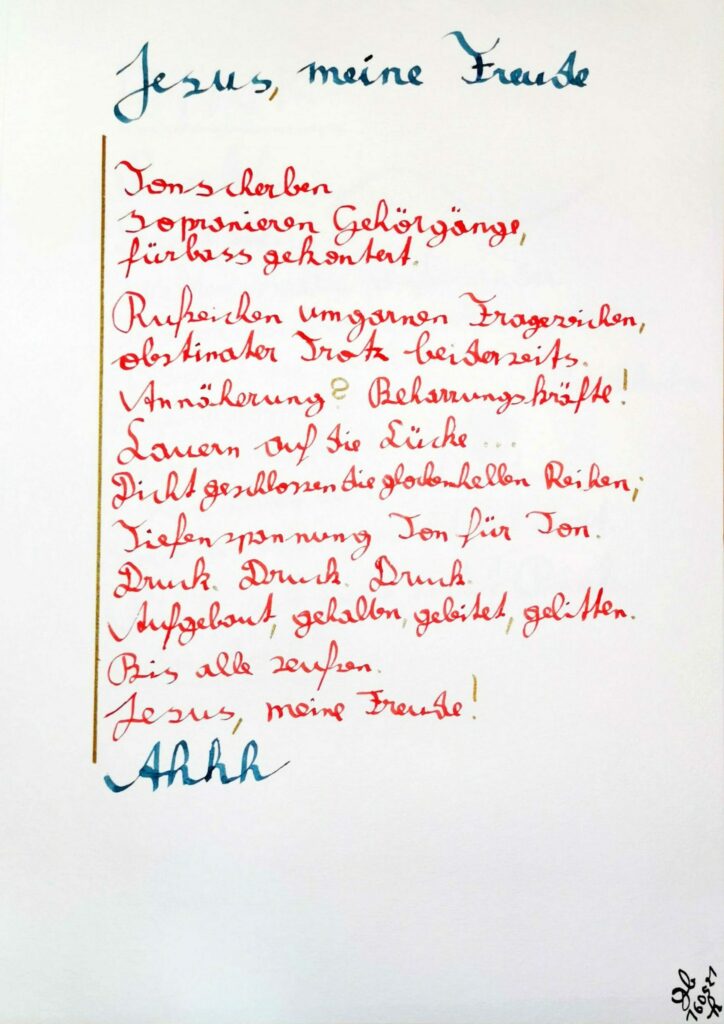 Jesus, meine Freude
Tonscherben
sopranieren Gehörgänge,
fürbass gekontert.
Rufzeichen umgarnen Fragezeichen,
obstinater Trotz beiderseits.
Annäherung? Beharrungskräfte!
Lauern auf die Lücke ...
Dicht geschlossen die glockenhellen Reihen;
Tiefenspannung Ton für Ton.
Druck. Druck. Druck.
Aufgebaut, gehalten, gebitet, gelitten.
Bis alle seufzen.
Jesus, meine Freude!
Ahhh
160521